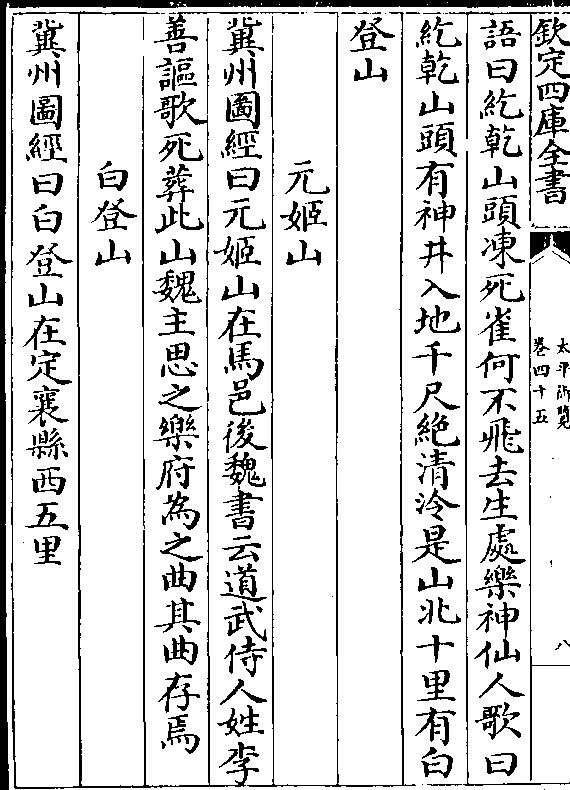 欽定四庫全書
太平御覽
卷四十五
八
語曰紇乾山頭凍死雀何不飛去生處樂神仙人歌曰
紇乾山頭有神井入地千尺絶清泠是山北十里有白
登山
元姬山
冀州圖經曰元姬山在馬邑後魏書云道武侍人姓李
善謳歌死葬此山魏主思之樂府為之曲其曲存焉
白登山
冀州圖經曰白登山在定襄縣西五里